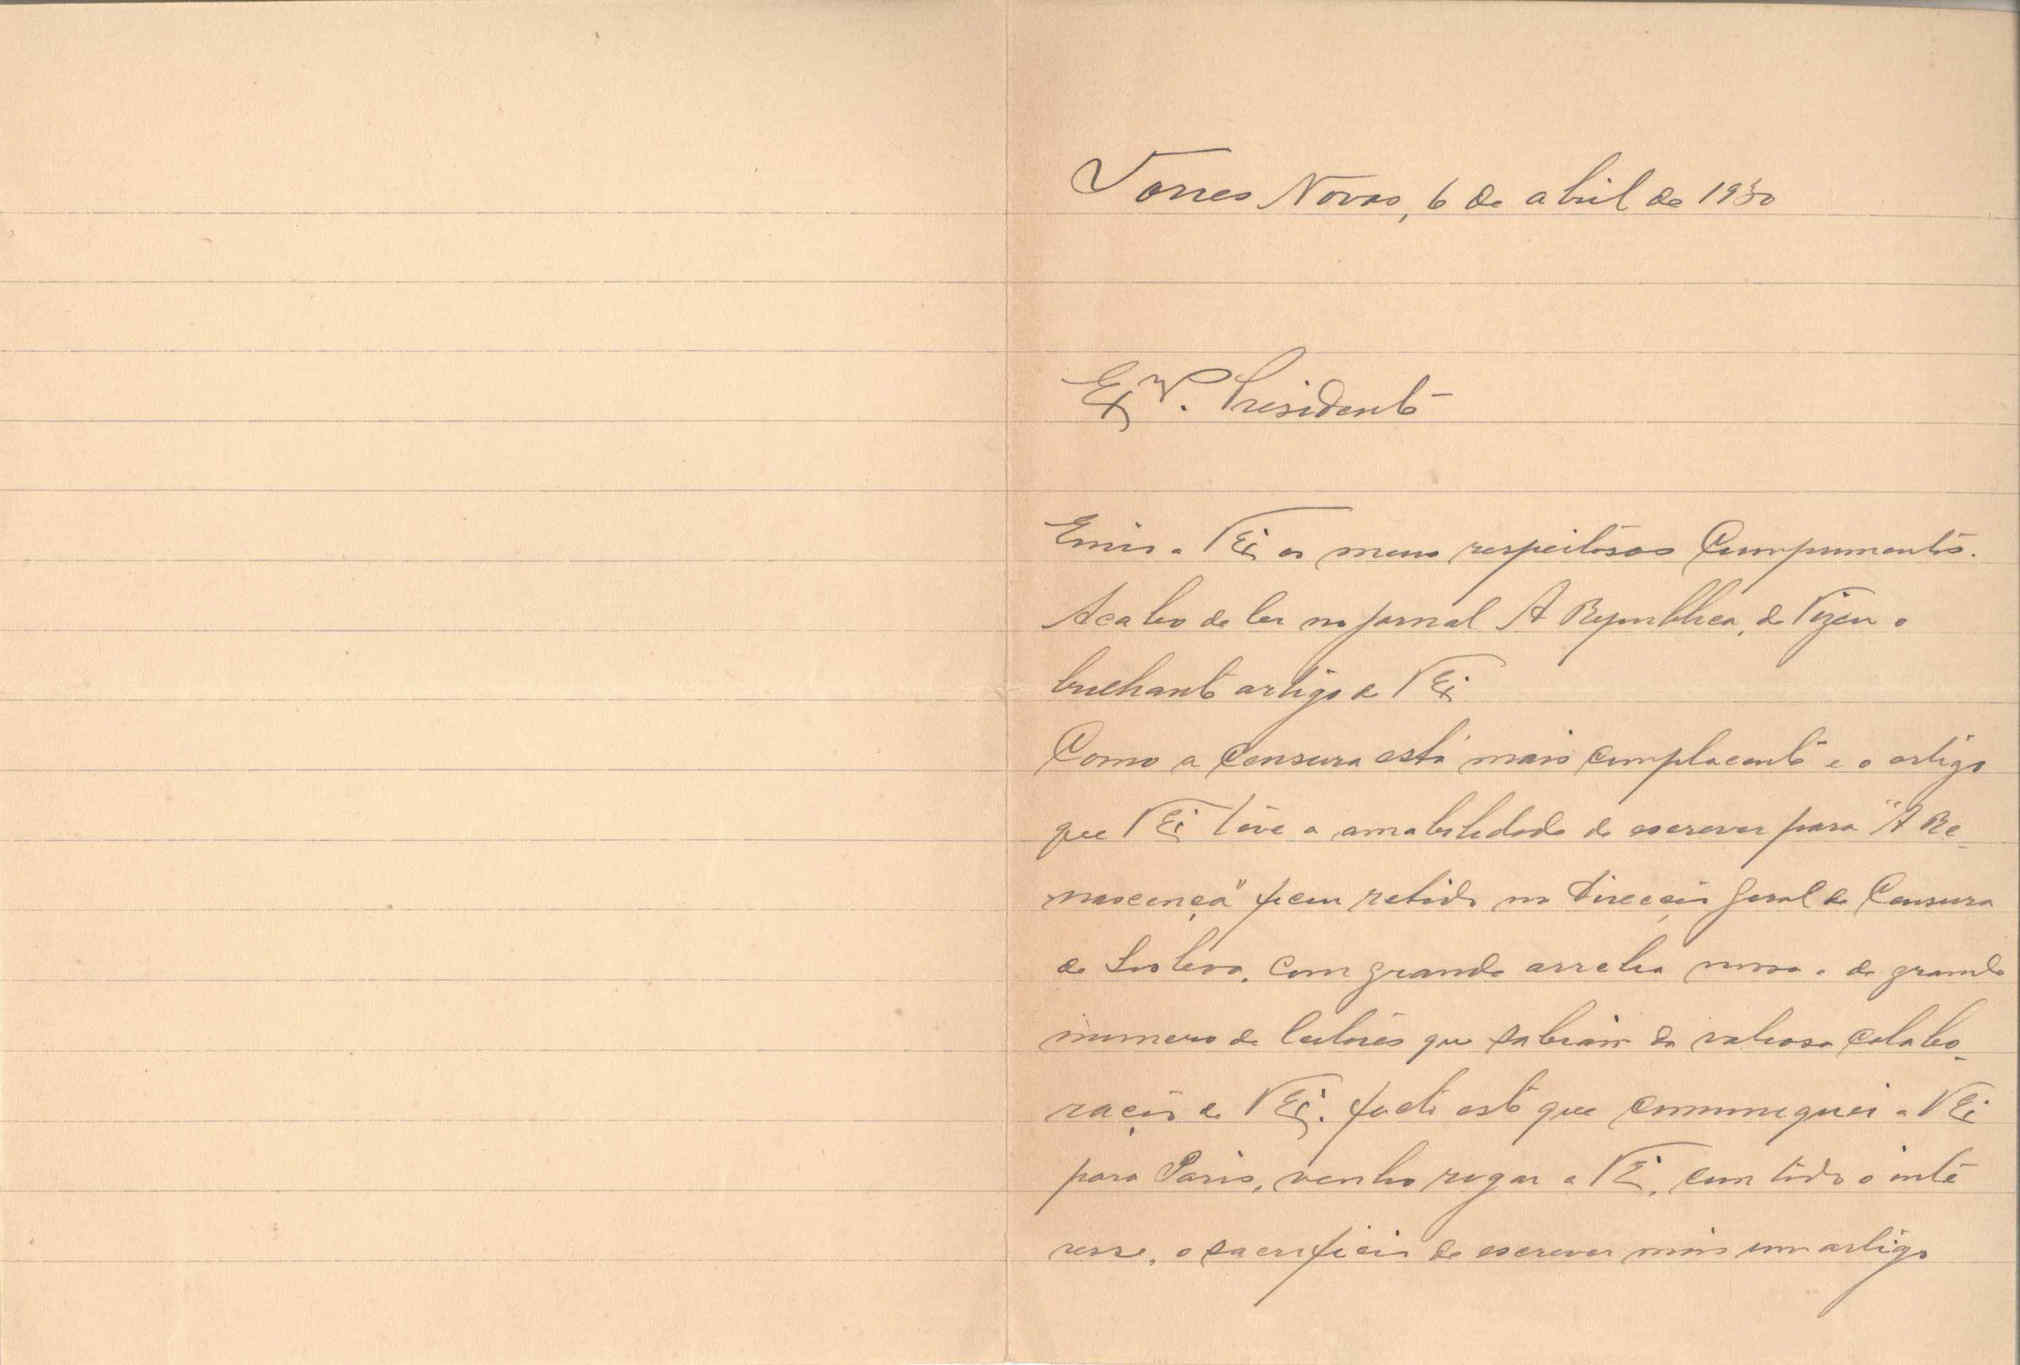 Torres Novas, 6 de abril de 1930
Exmº. Presidente
Envio a V Exª os meus respeitósos Cumprimentos.
Acabo de ler no jornal A Republica, de Vizeu o
brilhante artigo de V Exª
Como a Censura está mais complacente e o artigo
que V Exª teve a amabilidade de escrever para "A Re-
nascença" ficou retido na Direcção Geral de Censura
de Lisboa, com grande arrelia nossa e de grande
numero de leitores que sabiam da valiosa colabo-
ração de V Exª. facto este que comuniquei a V Exª
para Paris, venho rogar a V Exª, com todo o inte
resse, o sacrificio de escrever mais um artigo